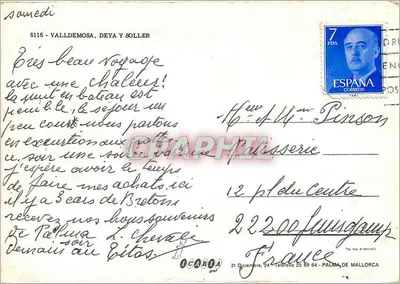 samedi
6116 - VALLDEMOSA, DEYA Y SOLLER
Très beau Voyage
avec une chaleur!
la nuit en bateau est
penible, le sejour un
peu court nous partons
en excursion aux grottes
ce soir une soirée
j'espère avoir le temps
de faire mes achats ici
il y a 3 cars de Bretons
recevez nos bons souvenirs
de Palma
demain soir au
7
PTAS
ESPAÑA
CORREOS
Mme Pinson
12 pl du Centre
22200 Guingamp
France
CYP
31 Diciembre, 24 - Teléfono 25 69 64 - PALMA DE MALLORCA
GRAPHIA